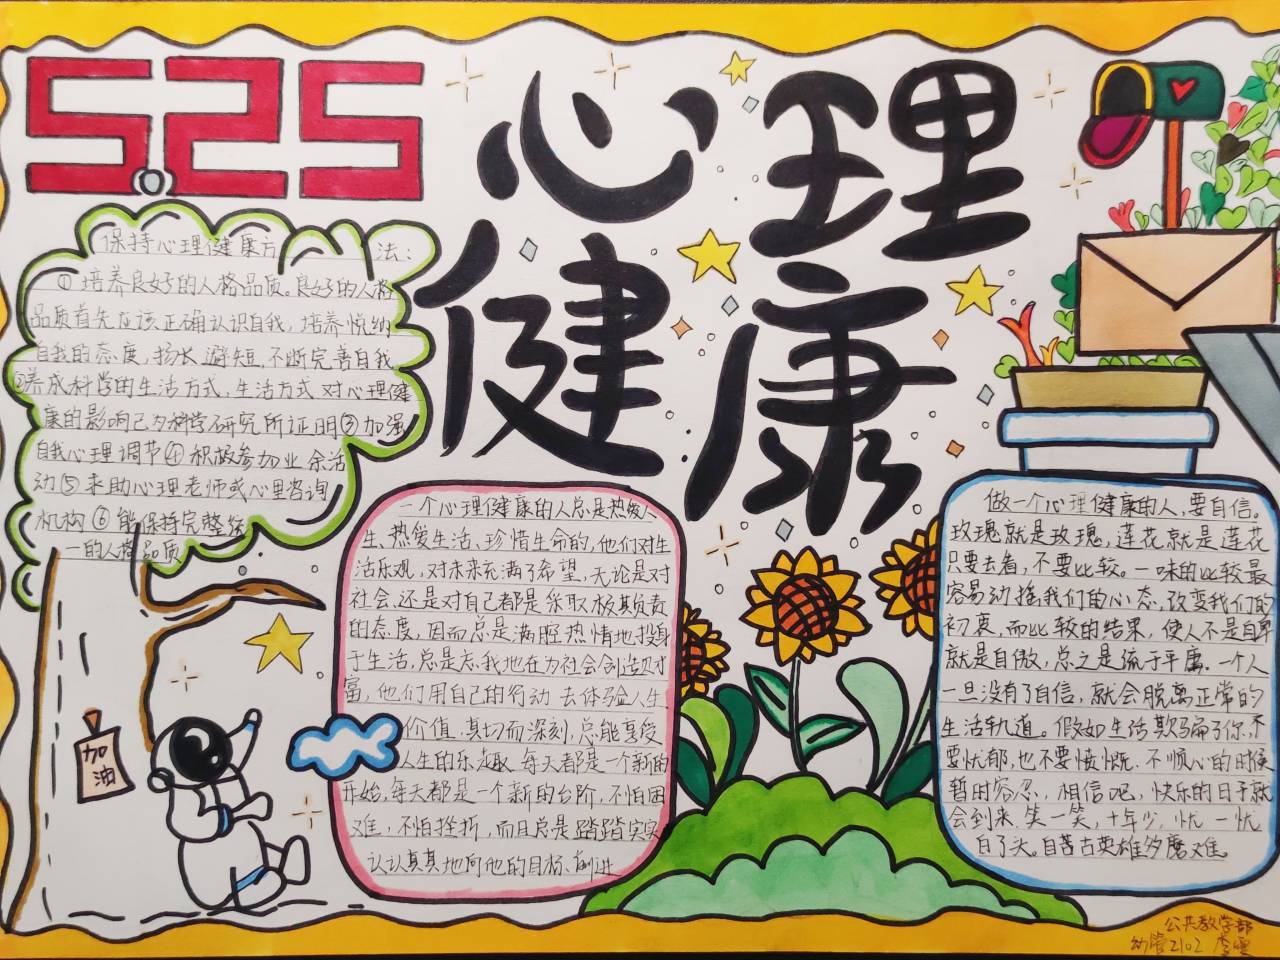 5.25
心理
健康
保持心理健康方法：
①培养良好的人格品质。良好的人格
品质首先应该正确认识自我，培养悦纳
自我的态度，扬长避短，不断完善自我
②养成科学的生活方式，生活方式对心理健
康的影响已为科学研究所证明③加强
自我心理调节④积极参加业余活
动⑤求助心理老师或心里咨询
机构⑥能保持完整统
一的人格品质
加
油
一个心理健康的人总是热爱人
生、热爱生活、珍惜生命的，他们对生
活乐观，对未来充满了希望，无论是对
社会，还是对自己都是采取极其负责
的态度，因而总是满腔热情地投身
于生活，总是忘我地在为社会创造财
富，他们用自己的行动去体验人生
价值，真切而深刻，总能享受
人生的乐趣，每天都是一个新的
开始，每天都是一个新的台阶，不怕困
难，不怕挫折，而且总是踏踏实实
认认真真地向他的目标、前进
做一个心理健康的人，要自信。
玫瑰就是玫瑰，莲花就是莲花
只要去看，不要比较。一味的比较最
容易动摇我们的心态，改变我们的
初衷，而比较的结果，使人不是自卑
就是自傲，总之是流于平庸。一个人
一旦没有了自信，就会脱离正常的
生活轨道。假如生活欺骗了你，不
要忧郁，也不要愤慨，不顺心的时候
暂时容忍，相信吧，快乐的日子就
会到来。笑一笑，十年少，忧一忧
白了头。自古英雄多磨难。
公共教学部
幼管2102